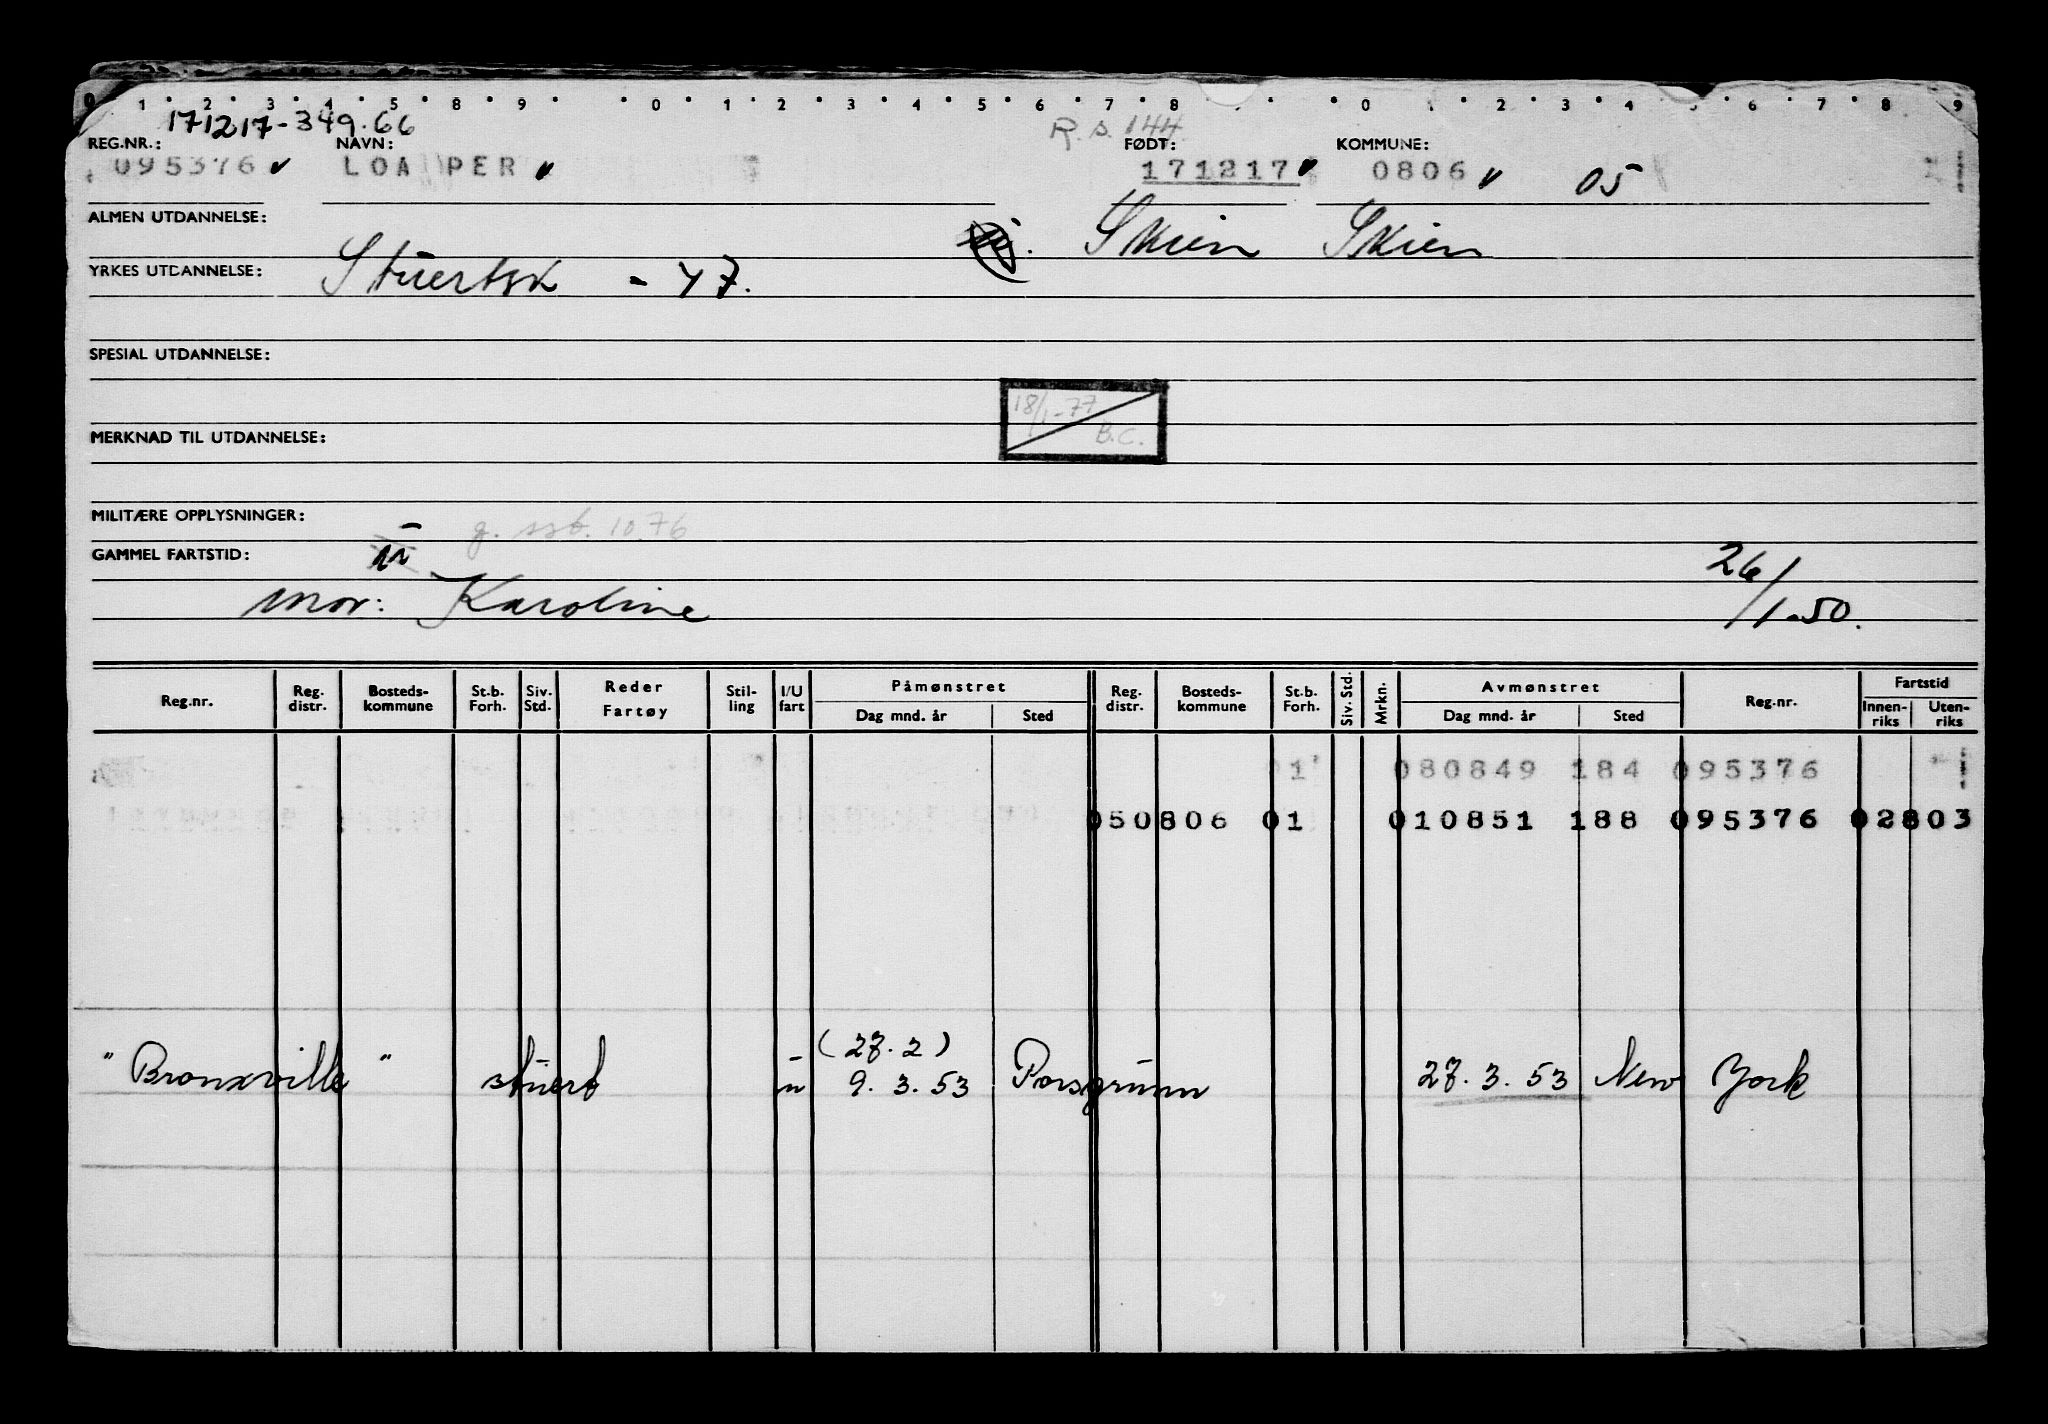 0 1 2 3 4 5 8 9 0 1 2 3 4 5 6 7 8 0 1 2 3 4 5 6 7 8 9
171217-349.66
R.s. 144
REG.NR.: NAVN: FØDT: KOMMUNE:
095376 LOA PER 171217 0806 05
ALMEN UTDANNELSE:
Skien Skien
YRKES UTDANNELSE: Stuertsk - 47.
SPESIAL UTDANNELSE:
18/1-77 B.C.
MERKNAD TIL UTDANNELSE:
MILITÆRE OPPLYSNINGER:
g. ssb. 10.76
GAMMEL FARTSTID: 26/1-50.
mor: Karoline
Reg.nr. Reg. distr. Bosteds-kommune St.b. Forh. Siv. Std. Reder Fartøy Stil-ling I/U fart Påmønstret Dag mnd. år Sted Reg. distr. Bosteds-kommune St.b. Forh. Siv. Std. Mrkn. Avmønstret Dag mnd. år Sted Reg.nr. Fartstid Innen-riks Uten-riks
01 080849 184 095376
050806 01 010851 188 095376 02803
(27.2)
"Bronxville" stuert u 9.3.53 Porsgrunn 27.3.53 New York